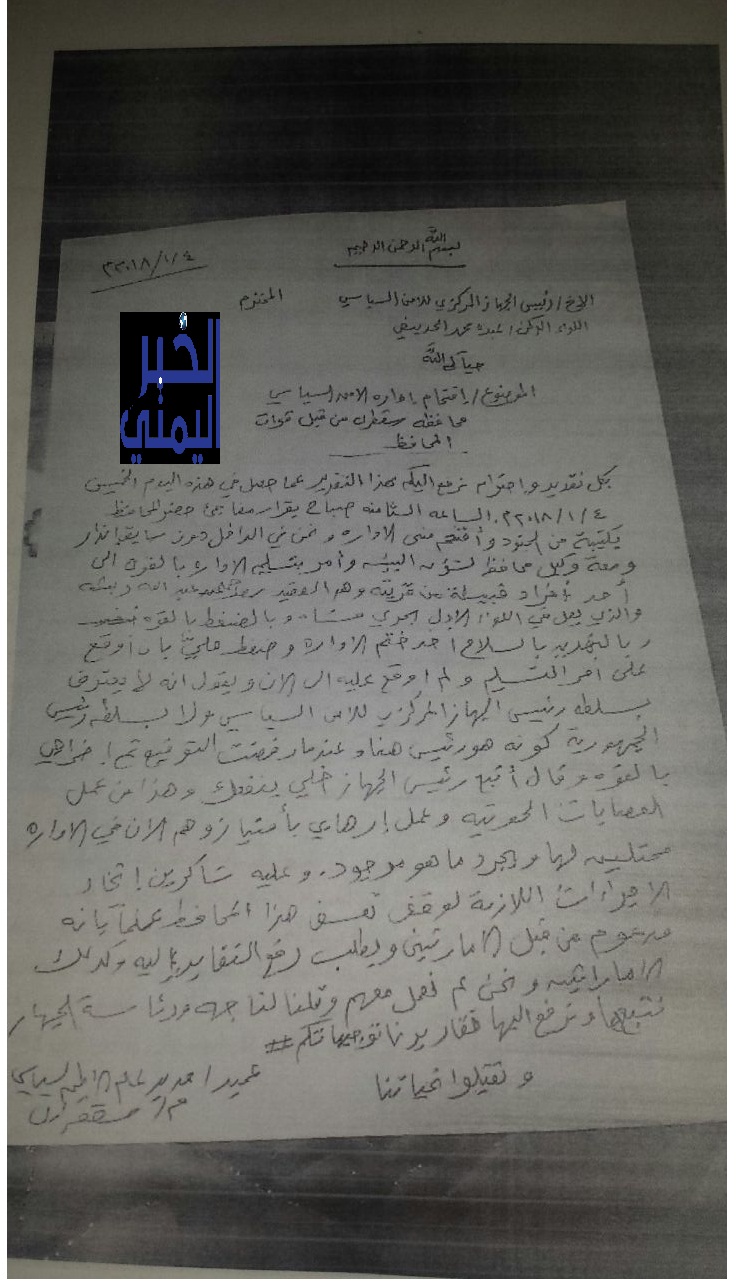 بسم الله الرحمن الرحيم
٢٠١٨/١/٤م
الاخ/ رئيس الجهاز المركزي للامن السياسي المحترم
اللواء الركن/ عبده محمد الحذيفي
حياكم الله
الموضوع/ اقتحام إدارة الامن السياسي
محافظة سقطرى من قبل قوات
المحافظ
الخبر
اليمني
بكل تقدير واحترام نرفع اليكم بهذا التقرير عما حصل في هذه اليوم الخميس
٢٠١٨/١/٤م. الساعه الثامنه صباح بقرار مفاجئ حضر المحافظ
بكتيبة من الجنود وأقتحم مبنى الاداره ونحن في الداخل دون سابق انذار
ومعه وكيل محافظ لشؤن البيئه وأمر بتسليم الاداره بالقوه الى
أحد أفراد قبيلة من قريته وهم العقيد عبد الله
والذي يعمل في اللواء الاول بحري مشاه وبالضغط بالقوه
وبالتهديد بالسلاح اخذ ختم الاداره وضغط عليّ بان أوقع
على امر التسليم ولم اوقع عليه الى الان ويقول انه لا يعترف
بسلطه رئيس الجهاز المركزي للامن السياسي ولا بسلطه رئيس
الجمهورية كونه هو رئيس هنا وعندما رفضت التوقيع تم إخراجي
بالقوه وقال أتبع رئيس الجهاز خلي ينفعك وهذا من عمل
العصابات الحوثيه وعمل إرهابي بأمتياز وهم الان في الاداره
محتليين لها وبجرد ما هو موجود. وعليه شاكرين إتخاذ
الاجراءات اللازمة لوقف تعسف هذا المحافظ عملاً بانه
مدعوم من قبل الاماراتيين ويطلب رفع التقارير إليه وكذلك
الاماراتيين ونحن لم نعمل معهم وقلنا لنا جهه ورئاسة الجهاز
نتبعها ونرفع اليها تقاريرنا توجيهاتكم #
وتقبلوا تحياتنا
عميد/ احمد مدير عام الامن السياسي
م/ سقطرى